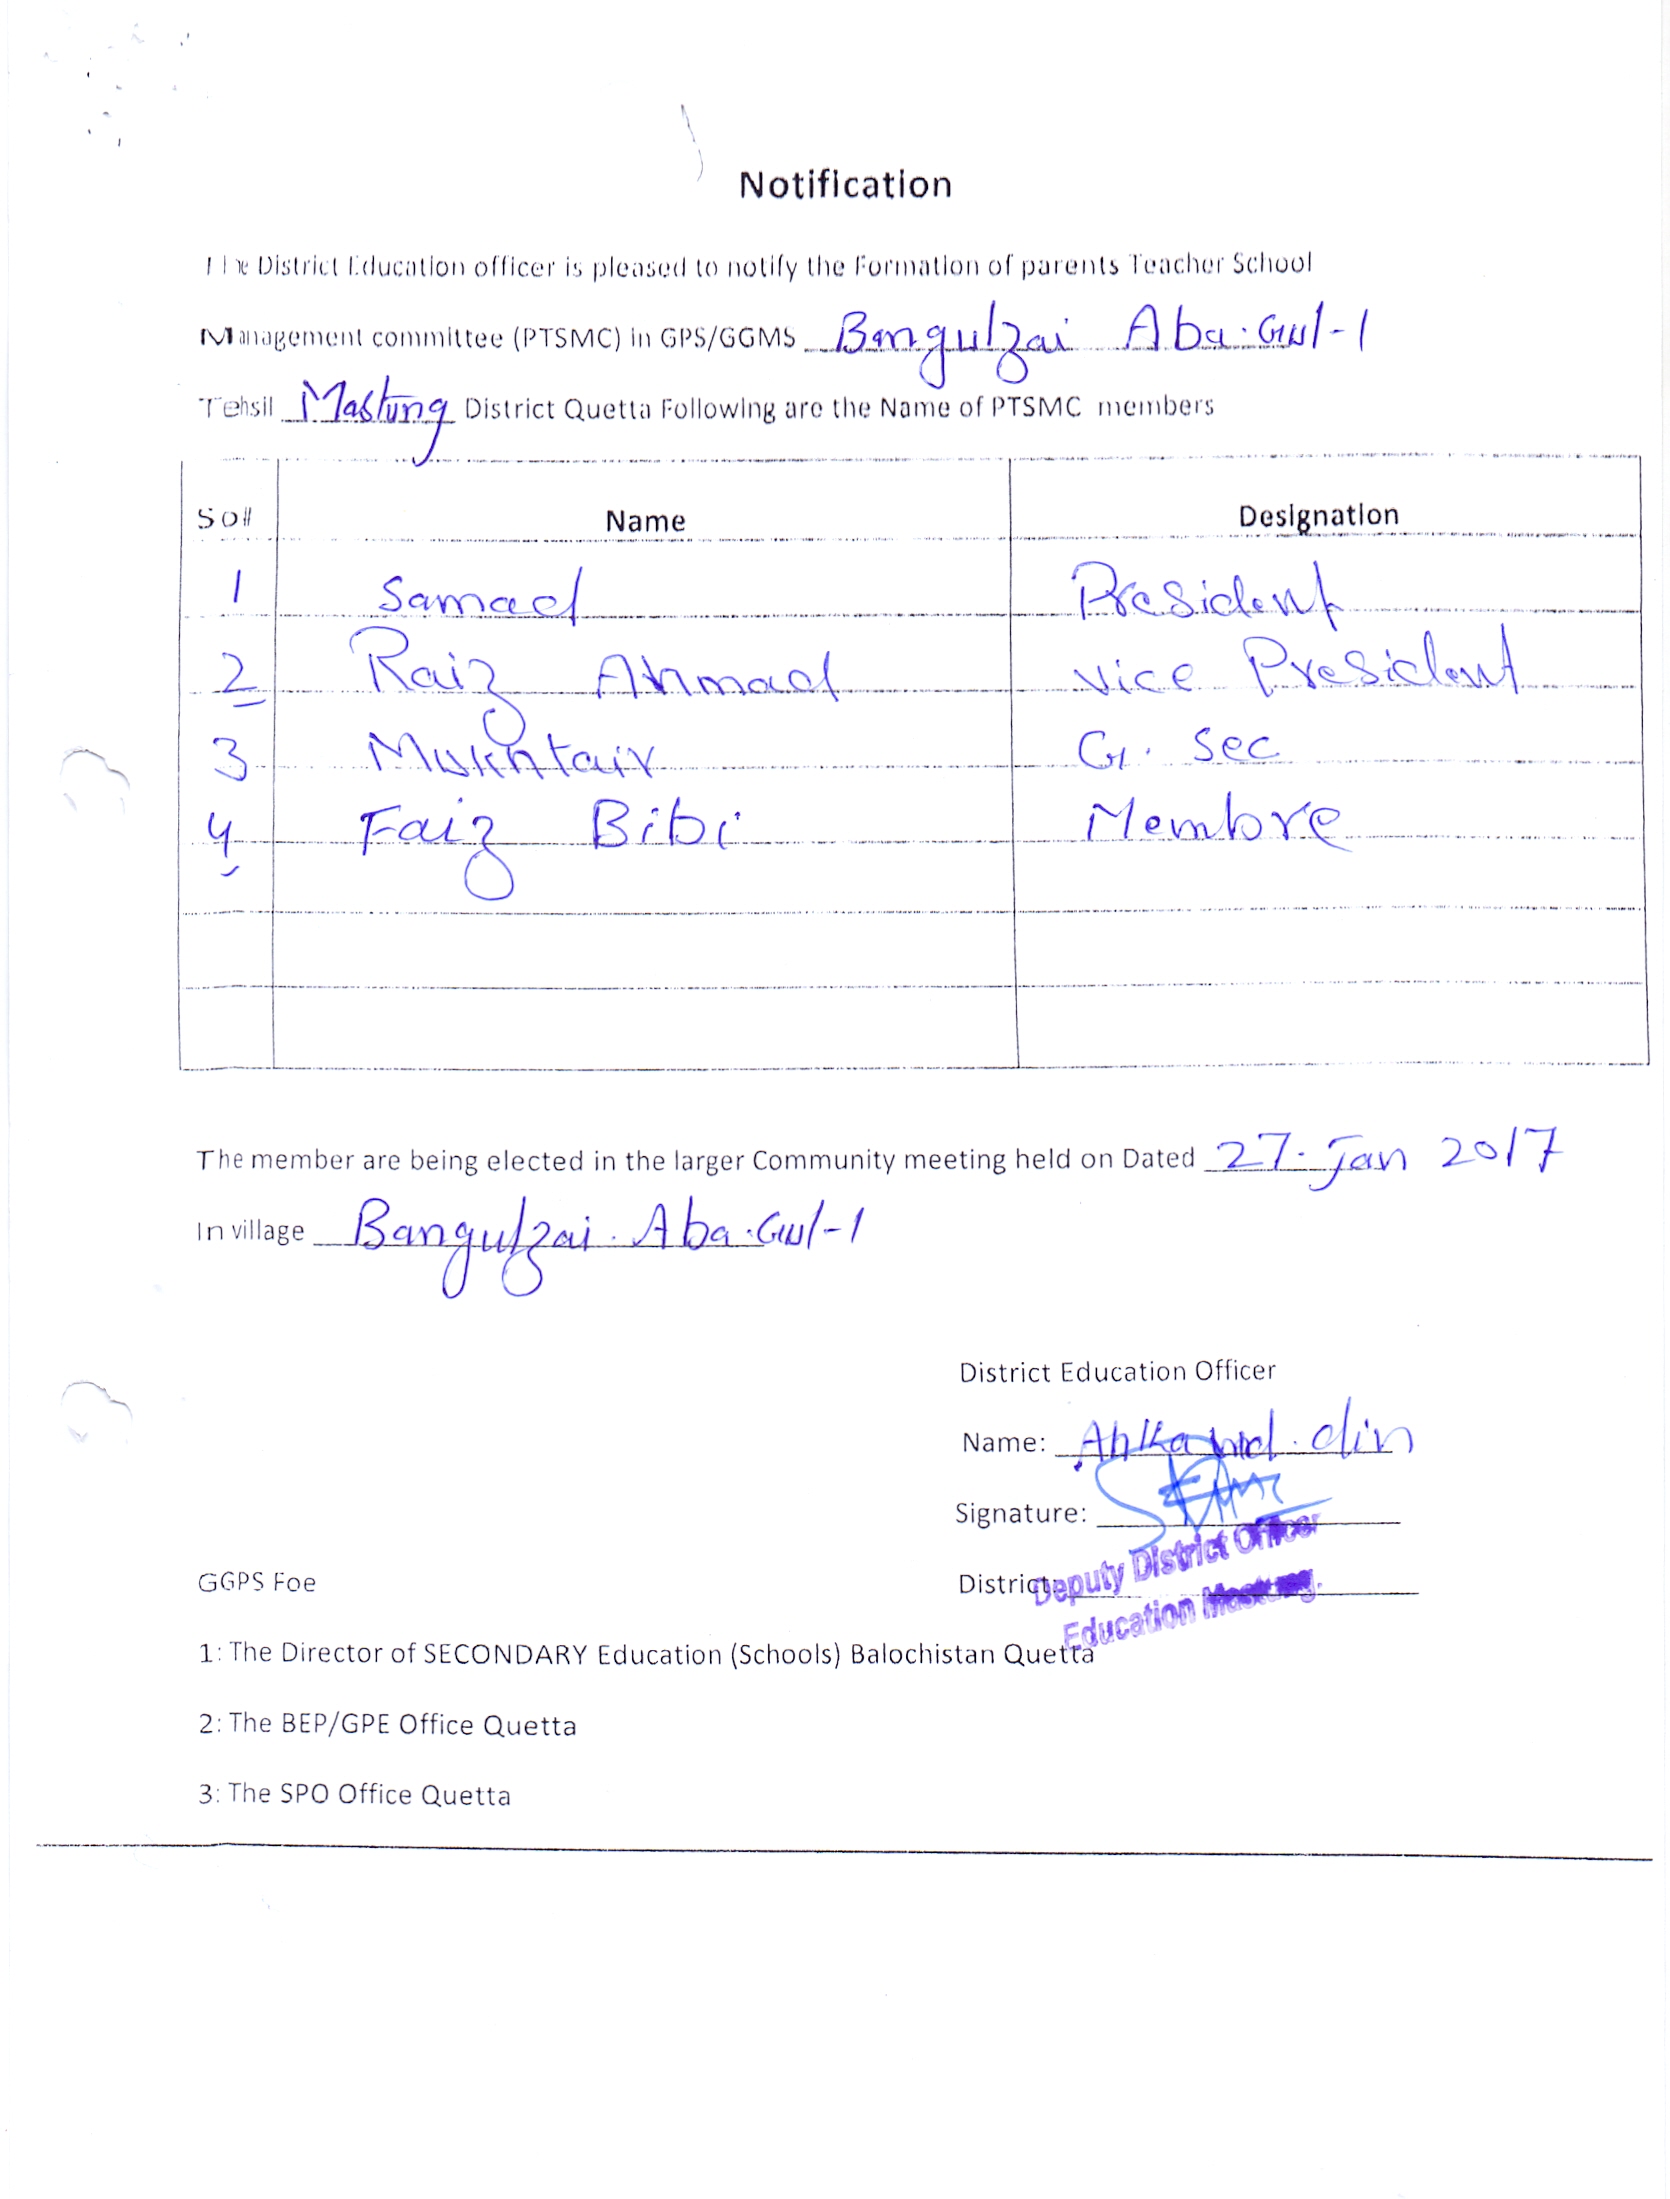 Notification
The District Education officer is pleased to notify the Formation of parents Teacher School
Management committee (PTSMC) in GPS/GGMS Bangulzai Aba.Gul-1
Tehsil Mastung District Quetta Following are the Name of PTSMC members
So# Name Designation
1 Samad President
2 Raiz Ahmad Vice President
3 Mukhtair G. Sec
4 Faiz Bibi Membre
The member are being elected in the larger Community meeting held on Dated 27. Jan 2017
In village Bangulzai. Aba.Gul-1
District Education Officer
Name: din
Signature:
Deputy District Officer
GGPS Foe District
Education Mastung.
1: The Director of SECONDARY Education (Schools) Balochistan Quetta
2: The BEP/GPE Office Quetta
3: The SPO Office Quetta